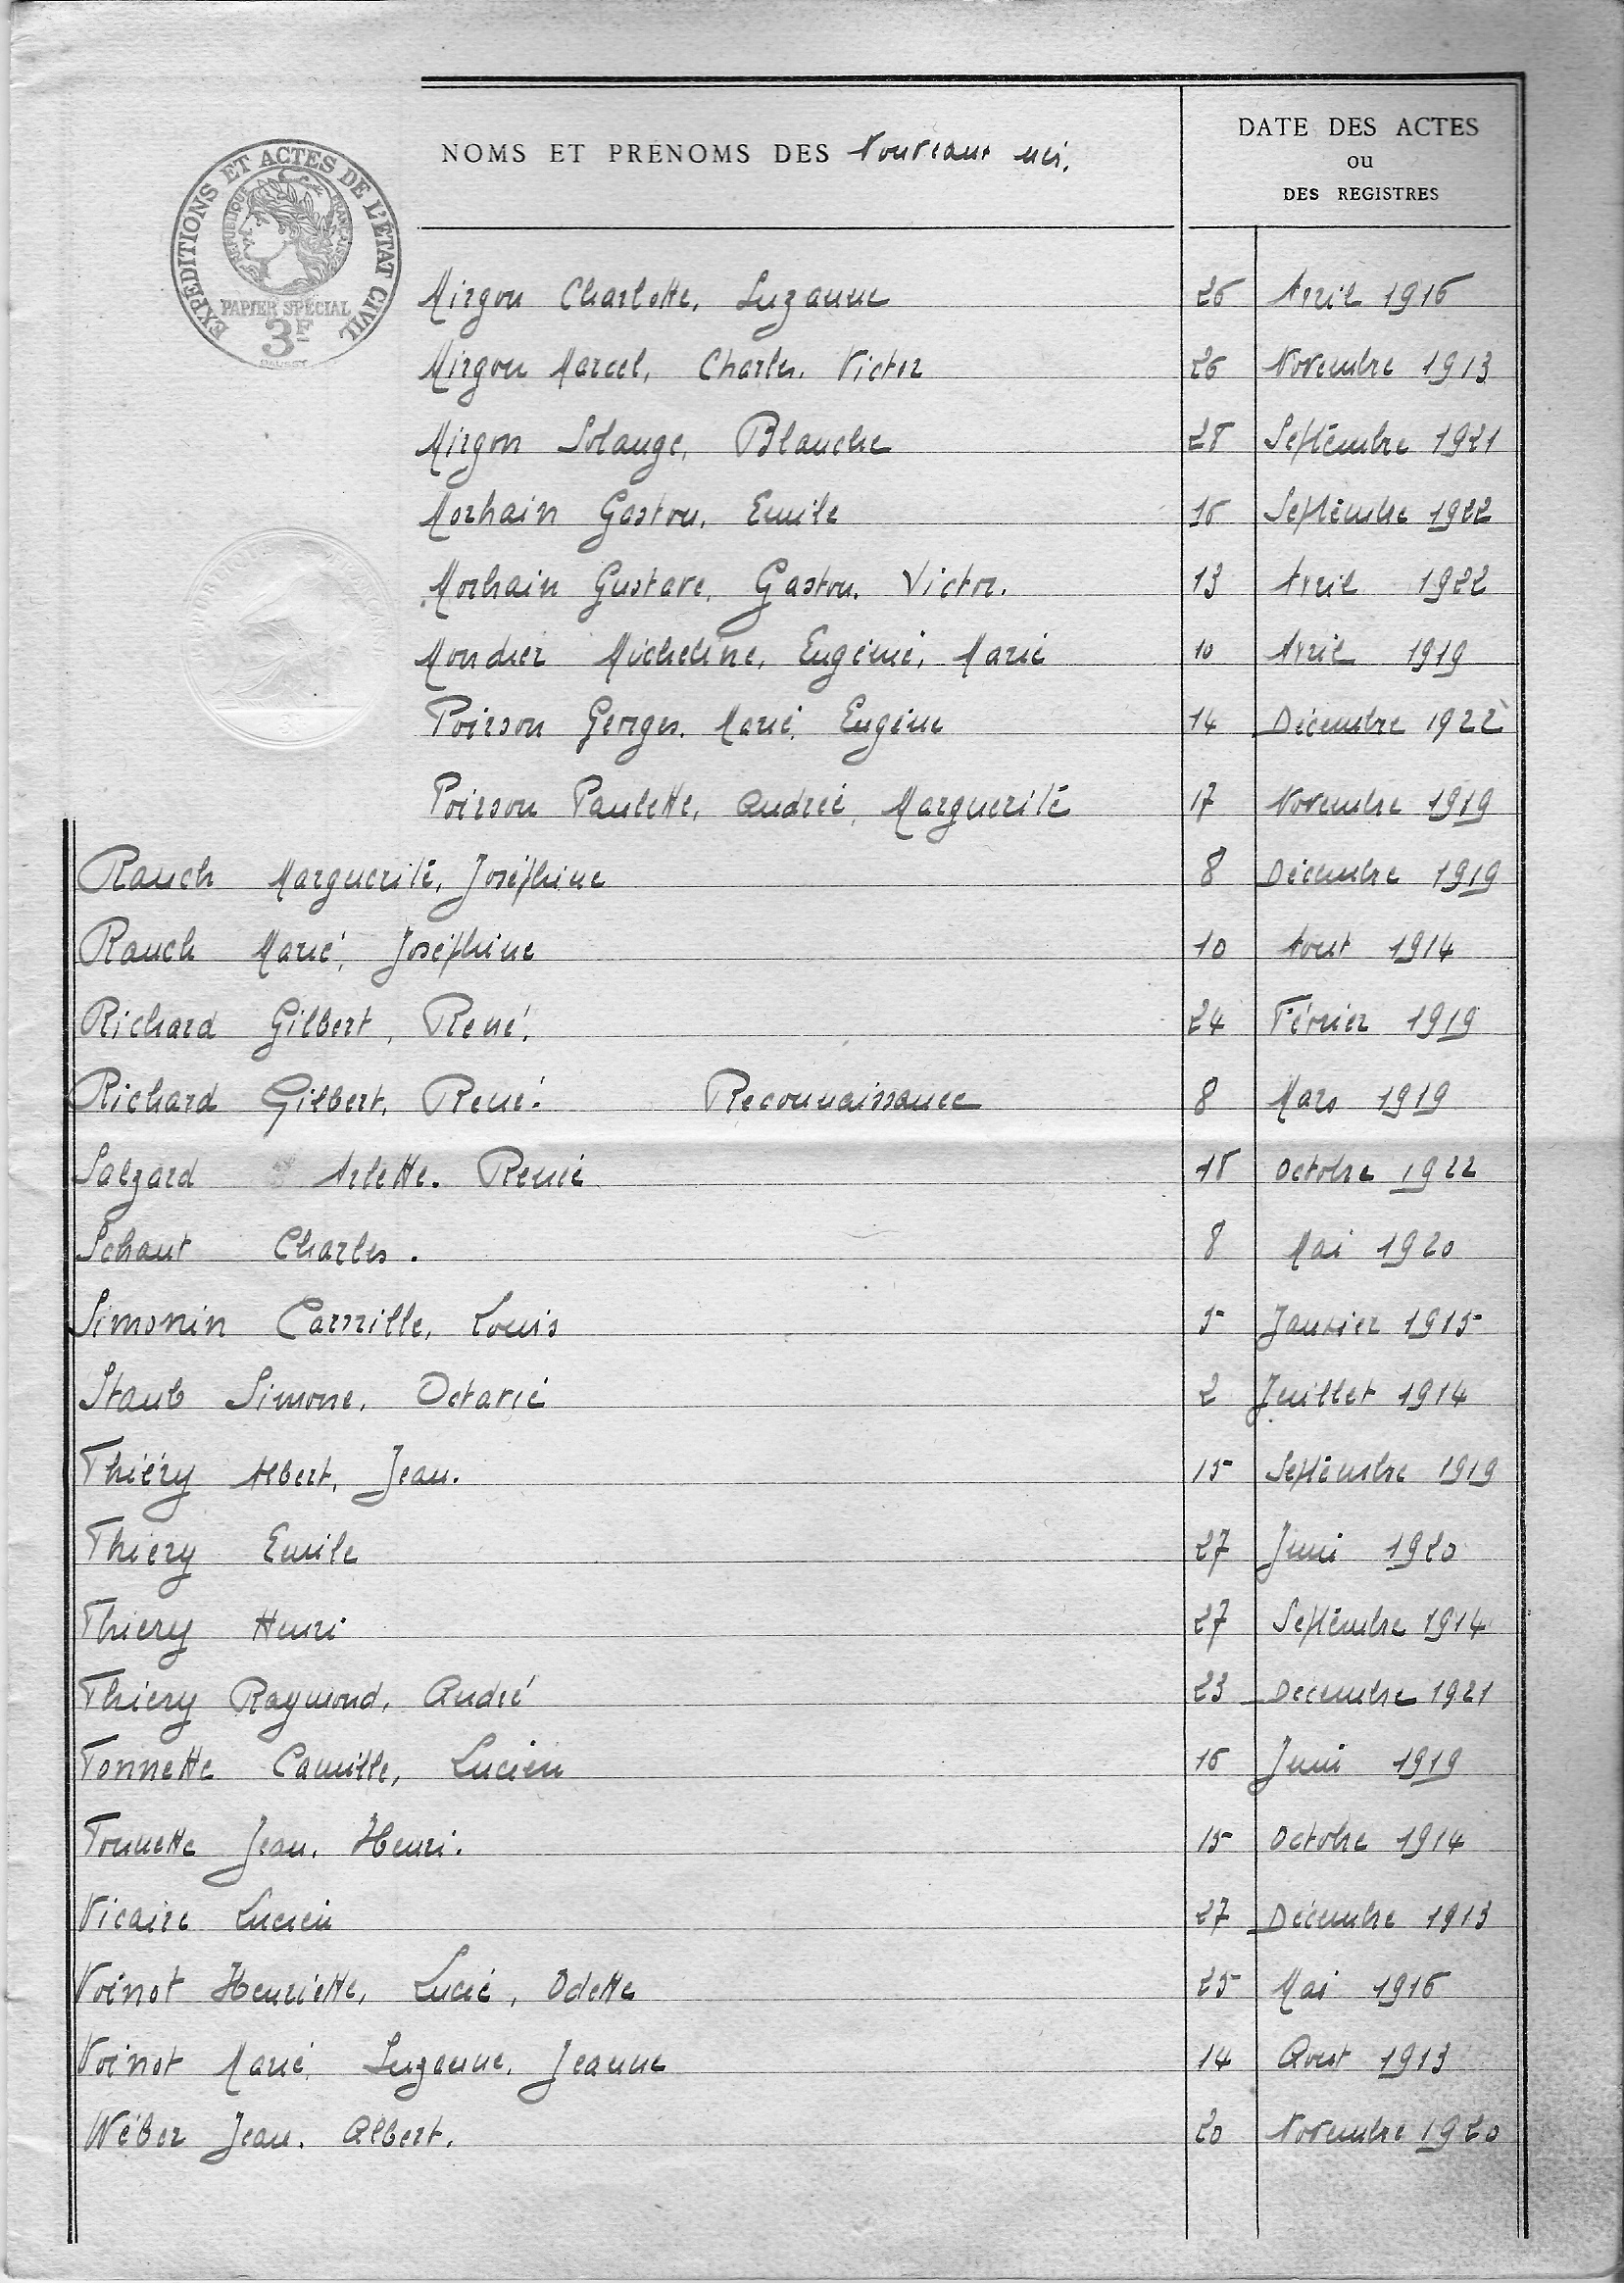 NOMS ET PRÉNOMS DES Nouveaux nés.
DATE DES ACTES
OU
DES REGISTRES
EXPÉDITIONS ET ACTES DE L'ÉTAT CIVIL
RÉPUBLIQUE FRANÇAISE
PAPIER SPÉCIAL
3F
Mirgon Charlotte, Suzanne 26 Avril 1916
Mirgon Marcel, Charles, Victor 26 Novembre 1913
Mirgon Solange, Blanche 28 Septembre 1921
Morhain Gaston, Emile 16 Septembre 1922
Morhain Gustave, Gaston, Victor. 13 Avril 1922
Mordier Micheline, Eugénie, Marie 10 Avril 1919
Poirson Georges, Marie, Eugène 14 Décembre 1922
Poirson Paulette, Andrée, Marguerite 17 Novembre 1919
Rauch Marguerite, Joséphine 8 Décembre 1919
Rauch Marie, Joséphine 10 Aout 1914
Richard Gilbert, René. 24 Février 1919
Richard Gilbert, René. Reconnaissance 8 Mars 1919
Salzard Arlette. Renée 18 Octobre 1922
Schaut Charles. 8 Mai 1920
Simonin Camille, Louis 5 Janvier 1915
Staub Simone, Octavie 2 Juillet 1914
Thiéry Albert, Jean. 15 Septembre 1919
Thiéry Emile 27 Juin 1920
Thiery Henri 27 Septembre 1914
Thiery Raymond, André 23 Décembre 1921
Tonnette Camille, Lucien 16 Juin 1919
Tonnette Jean, Henri. 15 Octobre 1914
Vicaire Lucien 27 Décembre 1913
Voinot Henriette, Lucie, Odette 25 Mai 1916
Voinot Marie, Suzanne, Jeanne 14 Aout 1913
Wéber Jean, Albert. 20 Novembre 1920